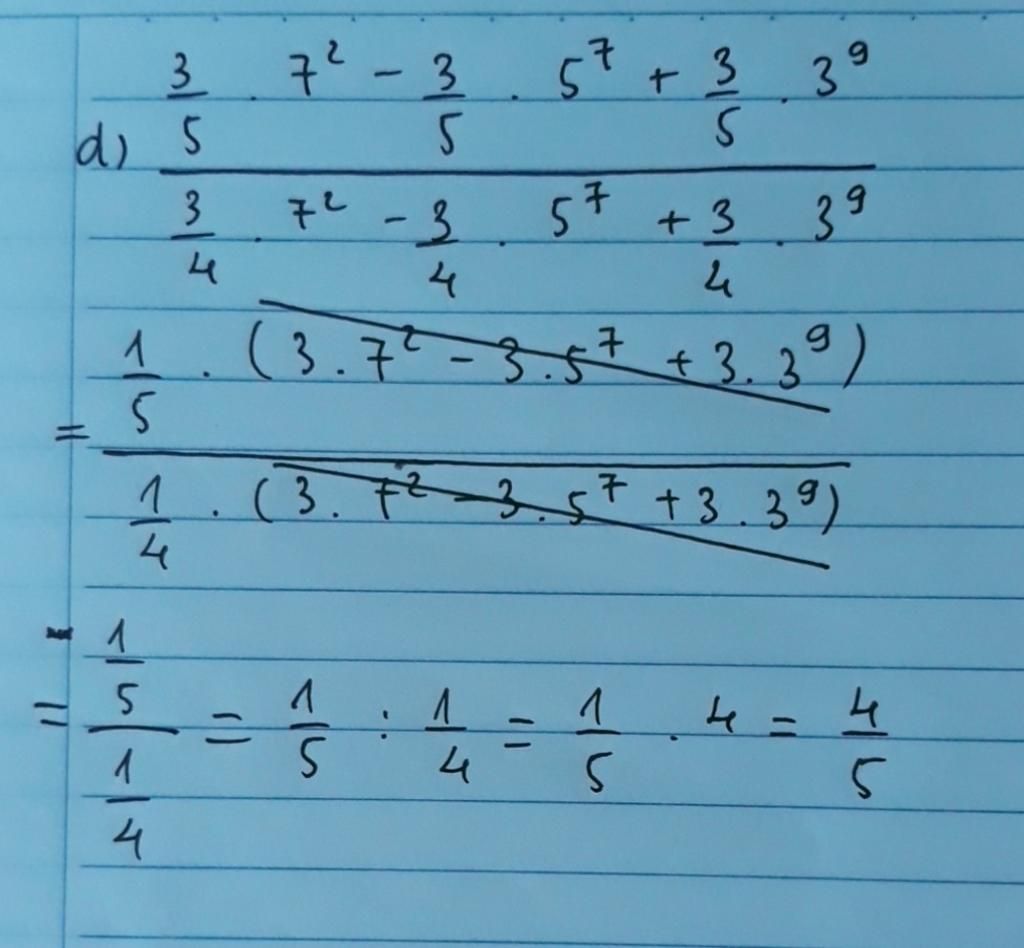 d) \frac{\frac{3}{5} . 7^2 - \frac{3}{5} . 5^7 + \frac{3}{5} . 3^9}{\frac{3}{4} . 7^2 - \frac{3}{4} . 5^7 + \frac{3}{4} . 3^9}
= \frac{\frac{1}{5} . (3 . 7^2 - 3 . 5^7 + 3 . 3^9)}{\frac{1}{4} . (3 . 7^2 - 3 . 5^7 + 3 . 3^9)}
= \frac{\frac{1}{5}}{\frac{1}{4}} = \frac{1}{5} : \frac{1}{4} = \frac{1}{5} . 4 = \frac{4}{5}